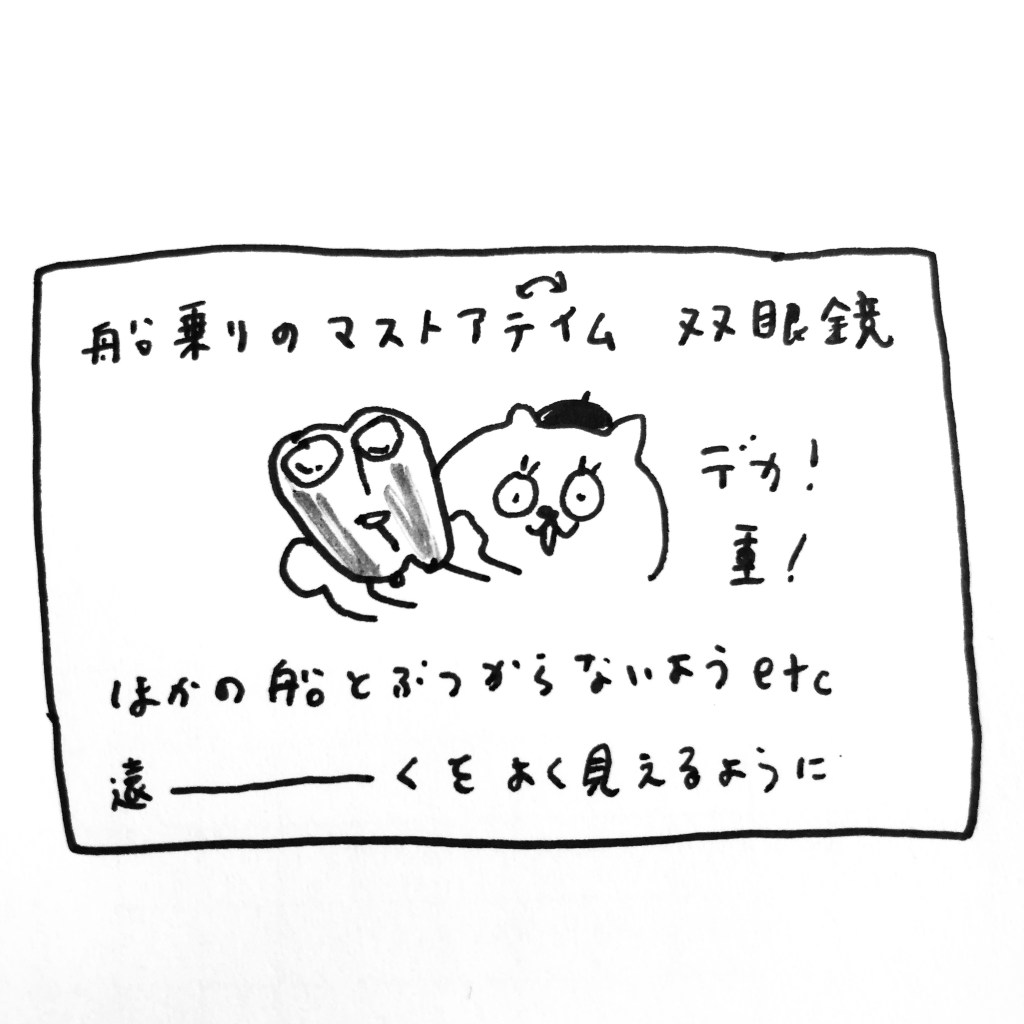 船乗りのマストアテイム 双眼鏡
デカ!
重!
ほかの船とぶつからないよう etc
遠———くをよく見えるように